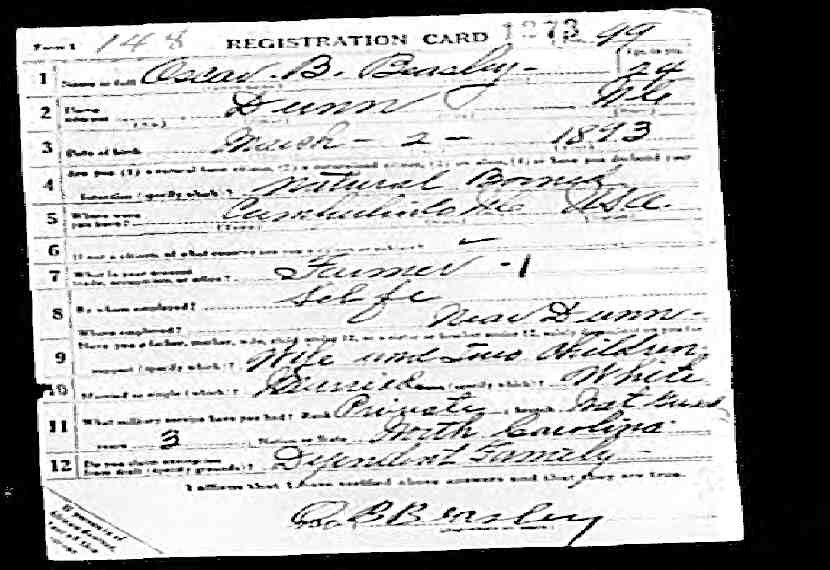 Form 1 148 REGISTRATION CARD 1273 No. 99
1 Name in full Oscar. B. Beasley - Age, in yrs. 24
2 Home address Dunn NC
3 Date of birth March - 2 - 1893
4 Are you (1) a natural-born citizen, (2) a naturalized citizen, (3) an alien, (4) or have you declared your
intention (specify which)? Natural Borned
5 Where were you born? USA.
6 If not a citizen, of what country are you a citizen or subject?
7 What is your present trade, occupation, or office? Farmer - 1
8 By whom employed? Selfe
Where employed? Near Dunn -
9 Have you a father, mother, wife, child under 12, or a sister or brother under 12, solely dependent on you for
support (specify which)? Wife and Two Children
10 Married or single (which)? Married Race (specify which)? White
11 What military service have you had? Rank Private ; branch Nat Guard
years 3 Nation or State North Carolina
12 Do you claim exemption from draft (specify grounds)? Dependent Family -
I affirm that I have verified above answers and that they are true.
O. B Beasley